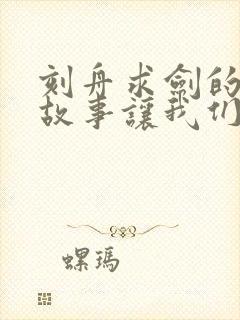 刻舟求劍的
故事讓我们
螺瑪